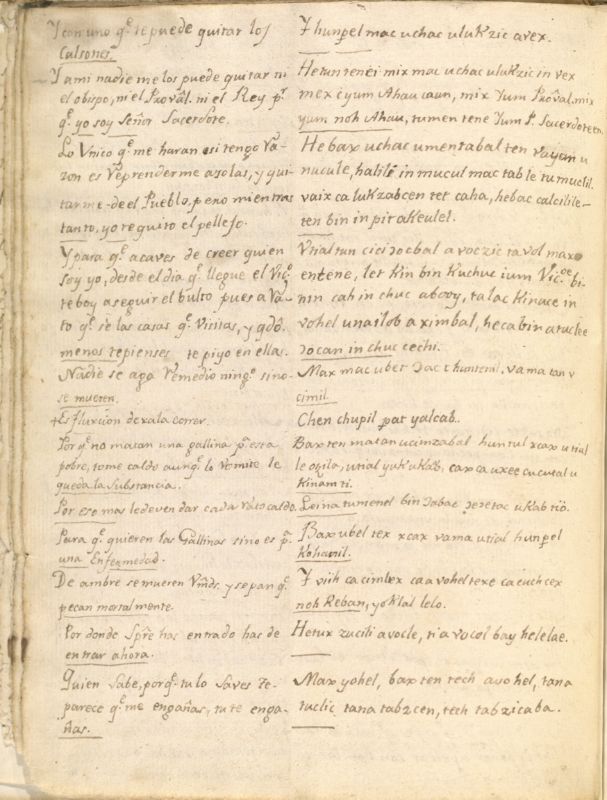 Y con uno q.e te puede quitar los
Calsones.
Y ami nadie me los puede quitar ni
el obispo, ni el Provãl. ni el Rey pr.
q.e yo soy Señor Sacerdote.
Lo Vnico q.e me haran si tengo Ra-
zon es Reprenderme asolas, y qui-
tarme de el Pueblo, peno mientras
tanto, yo te quito el pellejo.
Y para q.e acaves de creer quien
soy yo, desde el dia q.e llegue el Vic.o
te boy a seguir el bulto pues a Ra-
to q.e se las casas q.e Visitas, y qdõ.
menos te pienses te piyo en ellas.
Nadie se aga Remedio ning.o sino
se mueren.
+ Es fluxion dexala correr.
Porq.e no matan una gallina p.a esta
pobre, tome caldo aunq.e lo vomite le
queda la Substancia.
Por eso mas le deven dar cada rato caldo
Para q.e quieren las Gallinas sino es p.a
una Enfermedad.
De ambre se mueren Vm̃ds. y sepan q.e
pecan mortalmente.
Por donde Spr̃e has entrado has de
entrar ahora.
Quien sabe, porq.e tu lo saves te-
parece q.e me engañas, tu te enga-
ñas.
Y hunpel mac uchac ulukzic avex.
Hetun tenei mix mac uchac ulukzic in vex
mex ci yum Ahau caan, mix Yum Provãl. mix
yum noh Ahau, tumen tene Yum P. Sacerdoteen.
Hebax uchac umentabal ten
nucule, halili in mucul mac table tumuclil.
vaix ca lukzabcen tet caha, hebac calcilile-
ten bin in pit akeulel.
Vtial tun cici ocbal a voczic ta vol max
entene, let kin bin kuchuc ium Vic.oe bi-
nin cah in chuc abooy, talac kin ace in
vohel unailob a ximbal, heca bin atuclee
ocan in chuc cechi.
Max mac ubet
cimil.
Chen chupil pat yalcab.
Baxten matan ucimzabal huntul xcax utial
le otzila, utial yuk ukab, cax ca uxee cucutal u
kinam ti.
Loina tumenel bin
Bax ubel tex xcax vama utial hunpel
kohanil.
Y viih ca cimlex ca a vohel texe ca cuch cex
noh keban, yoklal lelo.
Hetux zucili avocle, ti a vocol bay helelae.
Max yohel, bax ten tech avohel, tana
tuclic tana tabzcen, tech tabzicaba.